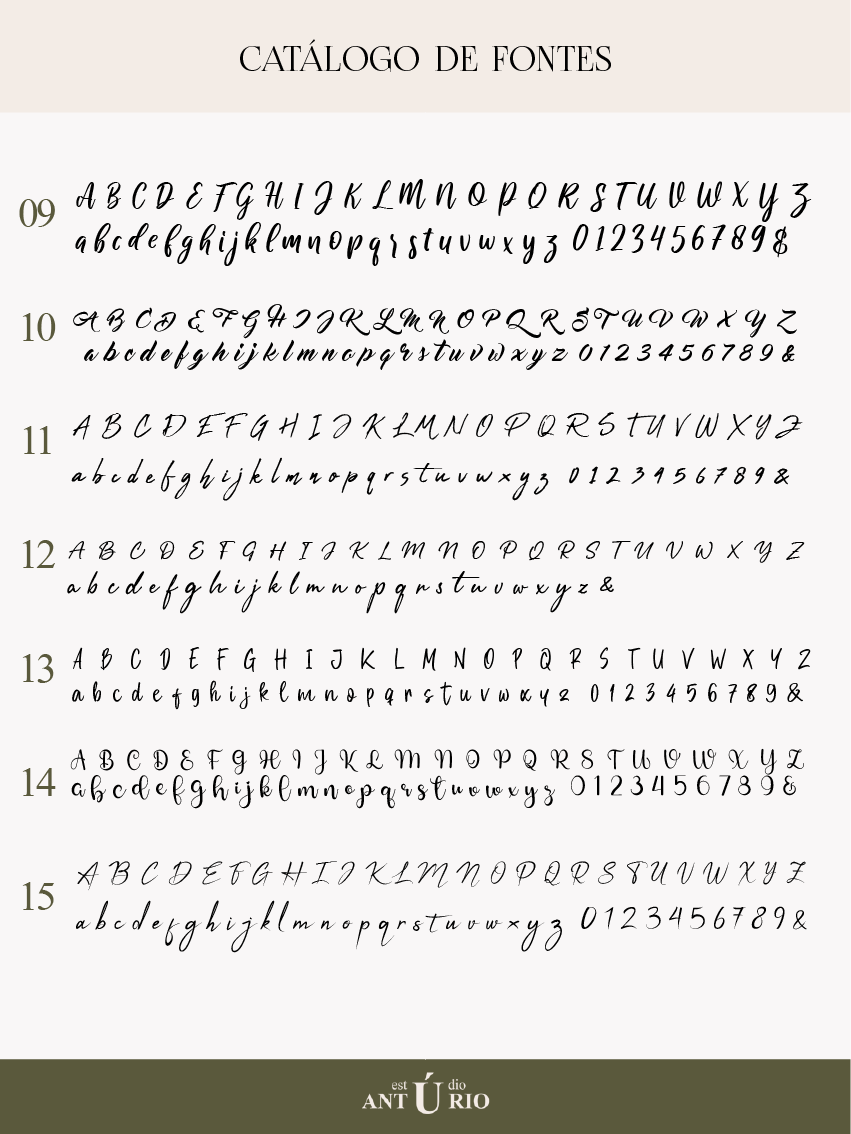 CATÁLOGO DE FONTES
09
A B C D E F G H I J K L M N O P Q R S T U V W X Y Z
a b c d e f g h i j k l m n o p q r s t u v w x y z 0 1 2 3 4 5 6 7 8 9 &
10
A B C D E F G H I J K L M N O P Q R S T U V W X Y Z
a b c d e f g h i j k l m n o p q r s t u v w x y z 0 1 2 3 4 5 6 7 8 9 &
11
A B C D E F G H I J K L M N O P Q R S T U V W X Y Z
a b c d e f g h i j k l m n o p q r s t u v w x y z 0 1 2 3 4 5 6 7 8 9 &
12
A B C D E F G H I J K L M N O P Q R S T U V W X Y Z
a b c d e f g h i j k l m n o p q r s t u v w x y z &
13
A B C D E F G H I J K L M N O P Q R S T U V W X Y Z
a b c d e f g h i j k l m n o p q r s t u v w x y z 0 1 2 3 4 5 6 7 8 9 &
14
A B C D E F G H I J K L M N O P Q R S T U V W X Y Z
a b c d e f g h i j k l m n o p q r s t u v w x y z 0 1 2 3 4 5 6 7 8 9 &
15
A B C D E F G H I J K L M N O P Q R S T U V W X Y Z
a b c d e f g h i j k l m n o p q r s t u v w x y z 0 1 2 3 4 5 6 7 8 9 &
estÚdio
ANTÚRIO